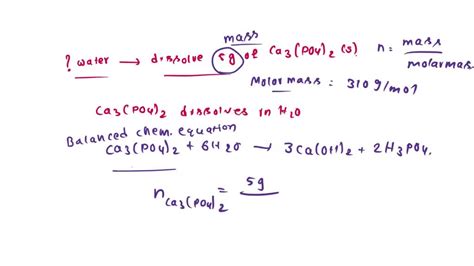 mass
? water → dissolve 5g of Ca3(PO4)2 (s) n = mass / molar mas.
Molar mass = 310 g/mol
Ca3(PO4)2 dissolves in H2O
Balanced chem. equation
Ca3(PO4)2 + 6H2O → 3Ca(OH)2 + 2H3PO4.
nCa3(PO4)2 = 5g